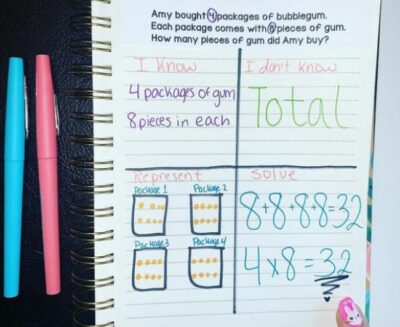 Amy bought 4 packages of bubblegum.
Each package comes with 8 pieces of gum.
How many pieces of gum did Amy buy?
I know
4 packages of gum
8 pieces in each
I don't know
Total
Represent
Package 1
Package 2
Package 3
Package 4
Solve
8+8+8+8=32
4x8=32